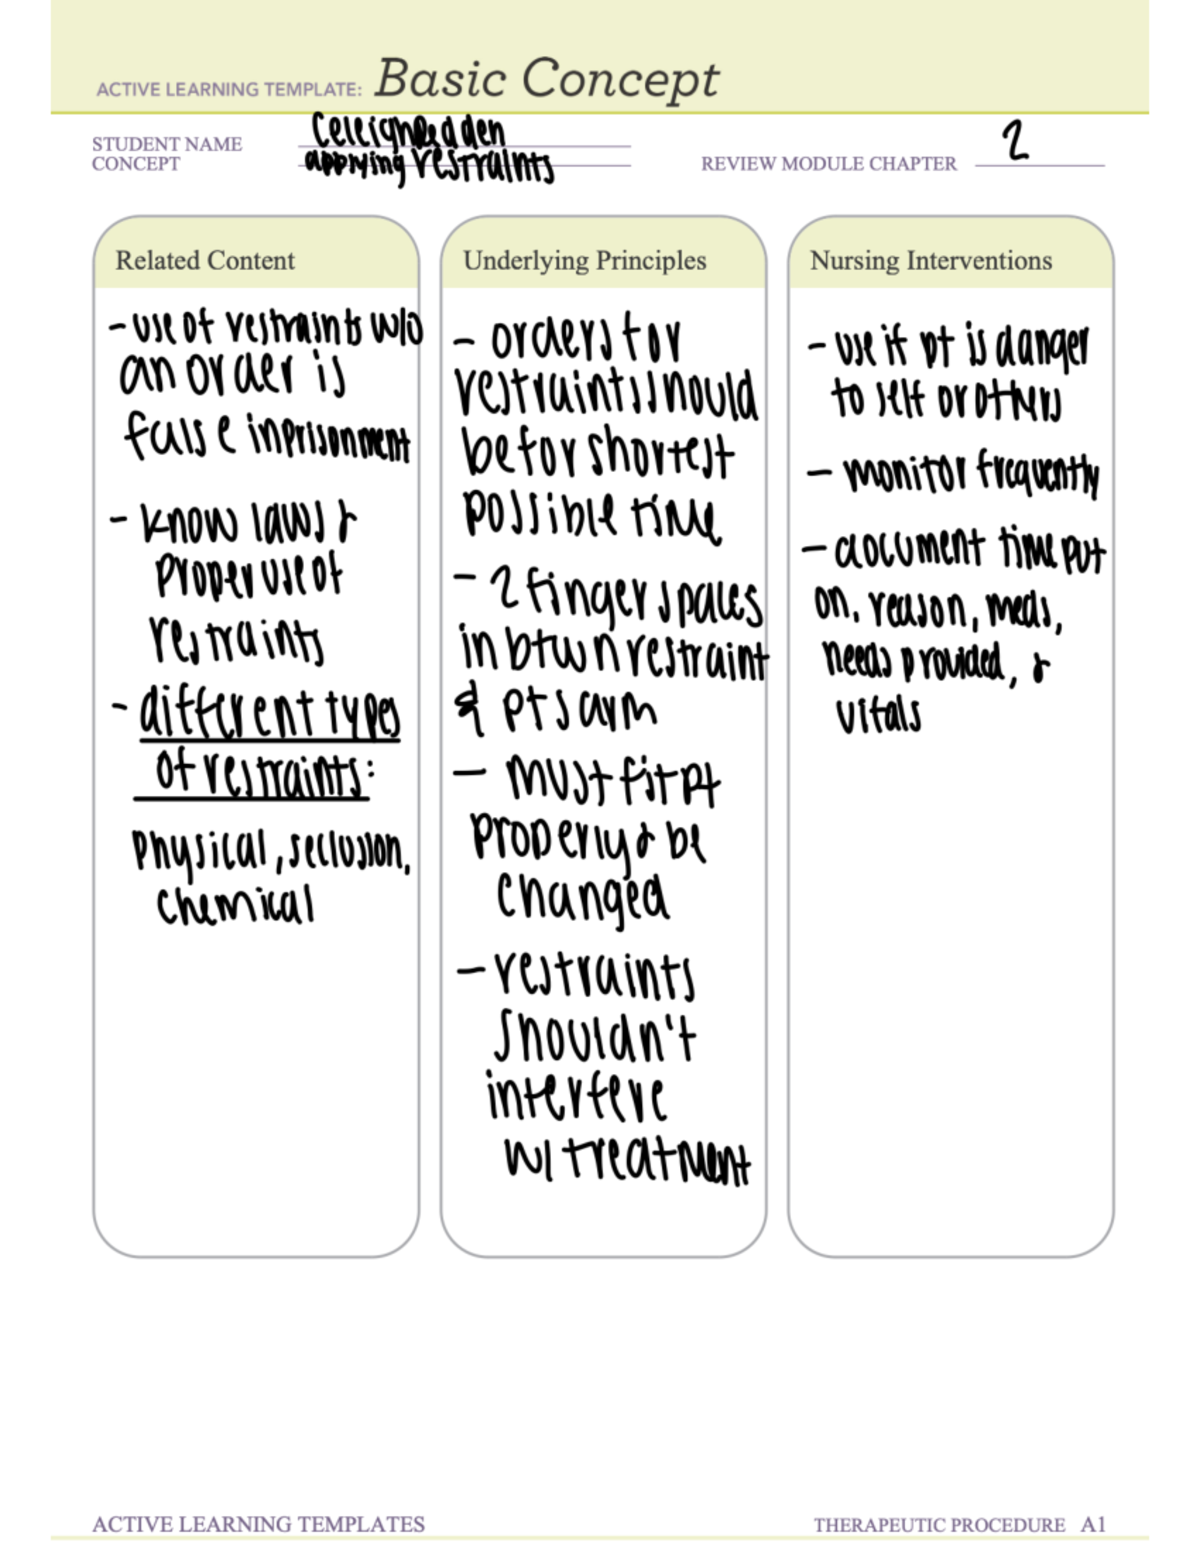 ACTIVE LEARNING TEMPLATE: Basic Concept
STUDENT NAME
CONCEPT applying restraints
REVIEW MODULE CHAPTER 2
Related Content
- use of restraints w/o
an order is
false inprisonment
- know laws &
proper use of
restraints
- different types
of restraints:
physical, seclusion,
chemical
Underlying Principles
- orders for
restraints should
be for shortest
possible time
- 2 finger spaces
in btwn restraint
& pts arm
- must fit pt
properly & be
changed
- restraints
shouldn't
interfere
w/ treatment
Nursing Interventions
- use if pt is danger
to self or others
- monitor frequently
- document time put
on, reason, meds,
needs provided, &
vitals
ACTIVE LEARNING TEMPLATES
THERAPEUTIC PROCEDURE A1